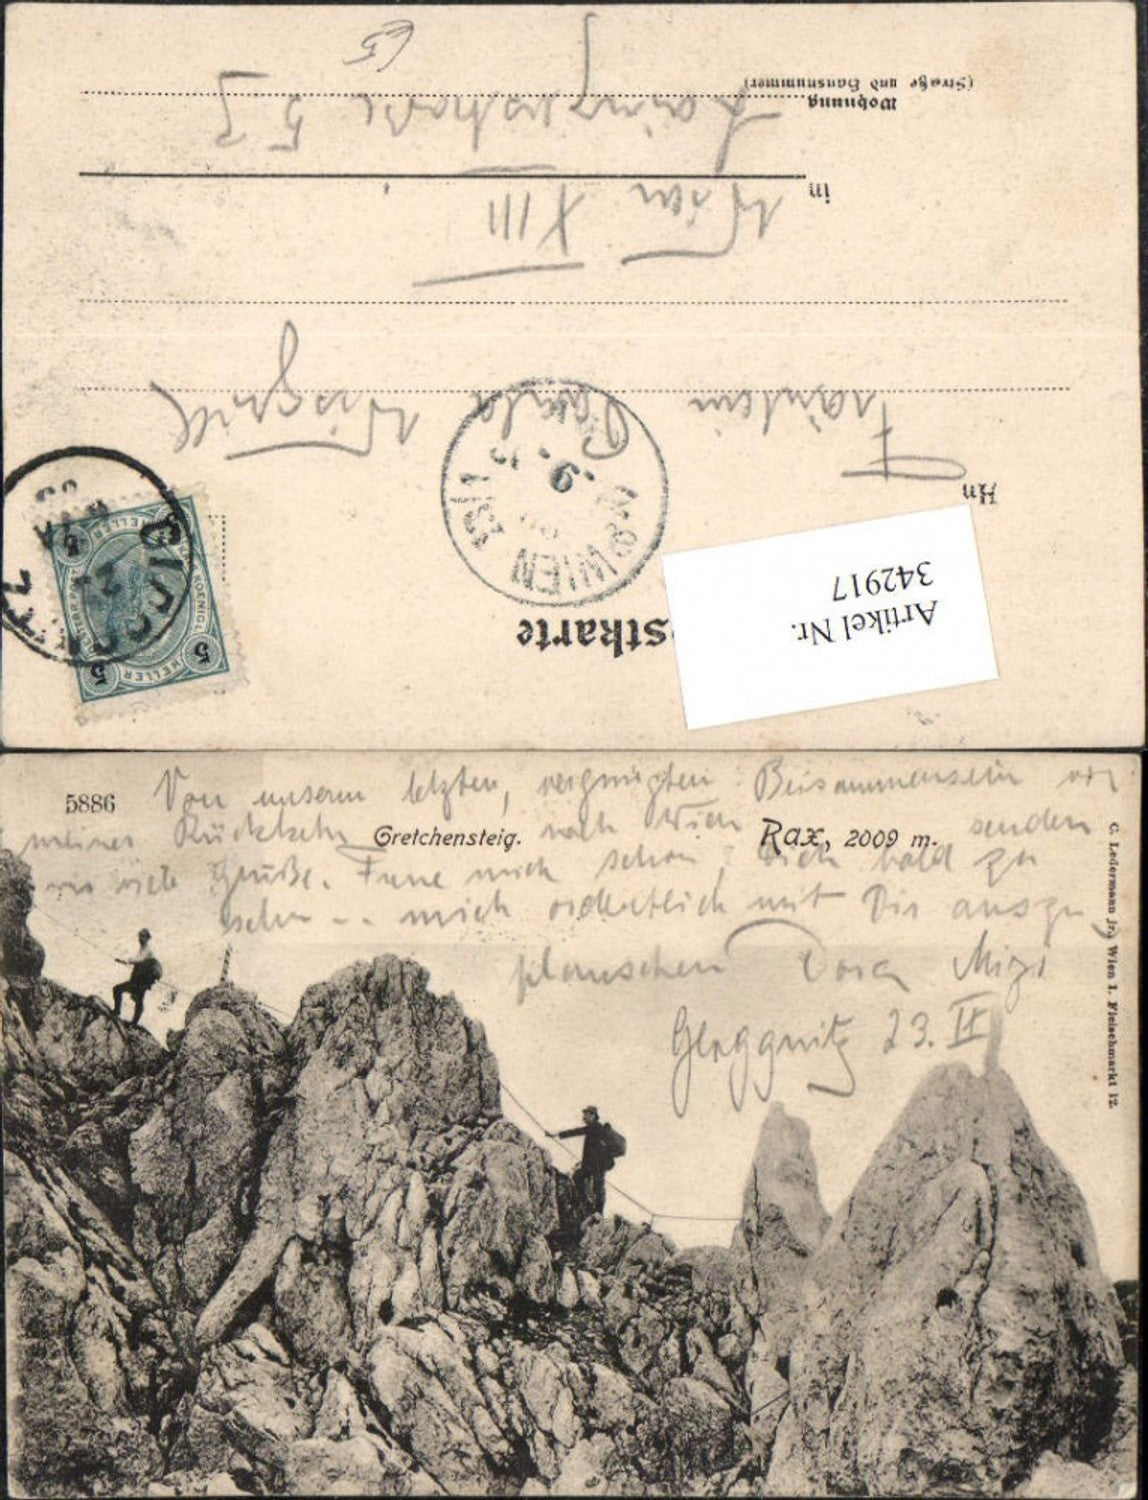 (Straße und Hausnummer)
Wohnung
53
in
Wien XIII
Fräulein Paula
An
WIEN 13/1
Postkarte
Artikel Nr.
342917
5 HELLER 5
5886
Von unserem letzten, vergnügten Beisammensein vor
meiner Rückkehr nach Wien senden
Gretchensteig.
Rax, 2009 m.
wir viele Grüße. Freue mich schon, Dich bald zu
sehen -- mich ordentlich mit Dir auszu
plauschen Dora Mizi
Gloggnitz 23. II
C. Ledermann jr., Wien 1. Fleischmarkt 12.